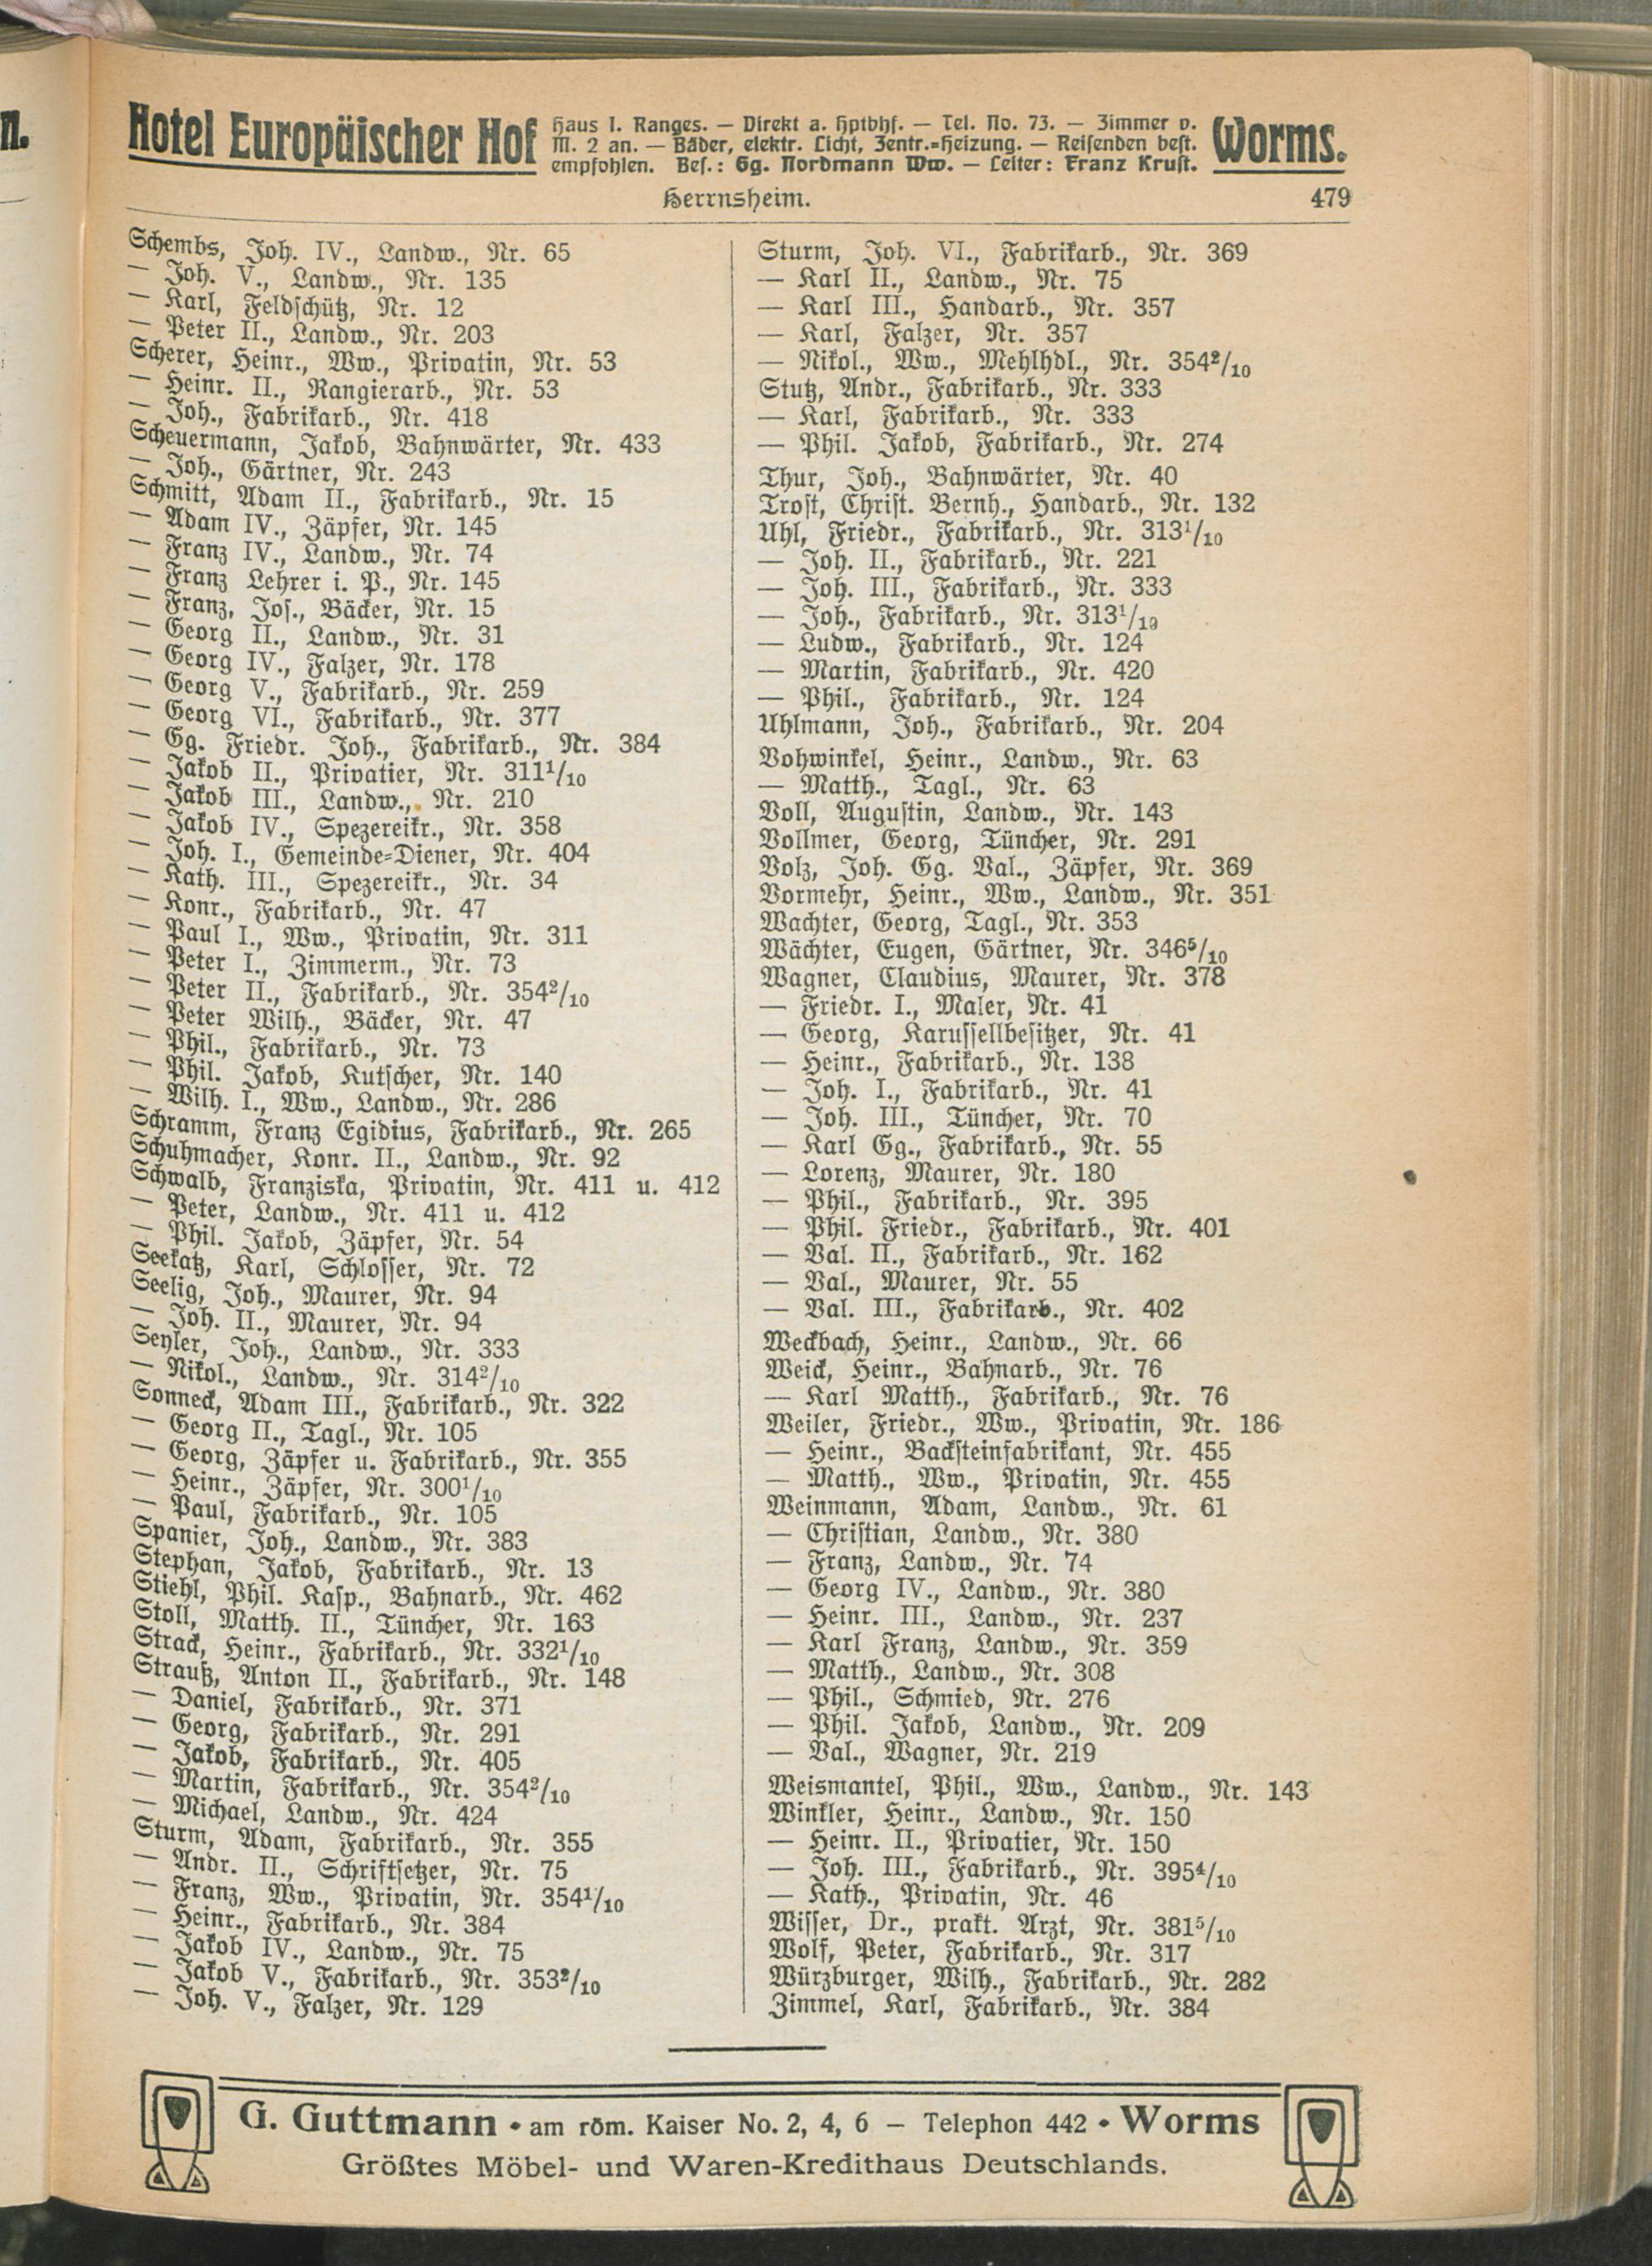 n.
Hotel Europäischer Hof
Haus I. Ranges. — Direkt a. Hptbhf. — Tel. No. 73. — Zimmer v.
M. 2 an. — Bäder, elektr. Licht, Zentr.=Heizung. — Reisenden best.
empfohlen. Bes.: Gg. Nordmann Ww. — Leiter: Franz Krust.
Worms.
Herrnsheim.
479
Schembs, Joh. IV., Landw., Nr. 65
— Joh. V., Landw., Nr. 135
— Karl, Feldschütz, Nr. 12
— Peter II., Landw., Nr. 203
Scherer, Heinr., Ww., Privatin, Nr. 53
— Heinr. II., Rangierarb., Nr. 53
— Joh., Fabrikarb., Nr. 418
Scheuermann, Jakob, Bahnwärter, Nr. 433
— Joh., Gärtner, Nr. 243
Schmitt, Adam II., Fabrikarb., Nr. 15
— Adam IV., Zäpfer, Nr. 145
— Franz IV., Landw., Nr. 74
— Franz Lehrer i. P., Nr. 145
— Franz, Jos., Bäcker, Nr. 15
— Georg II., Landw., Nr. 31
— Georg IV., Falzer, Nr. 178
— Georg V., Fabrikarb., Nr. 259
— Georg VI., Fabrikarb., Nr. 377
— Gg. Friedr. Joh., Fabrikarb., Nr. 384
— Jakob II., Privatier, Nr. 311¹/₁₀
— Jakob III., Landw., Nr. 210
— Jakob IV., Spezereikr., Nr. 358
— Joh. I., Gemeinde=Diener, Nr. 404
— Kath. III., Spezereikr., Nr. 34
— Konr., Fabrikarb., Nr. 47
— Paul I., Ww., Privatin, Nr. 311
— Peter I., Zimmerm., Nr. 73
— Peter II., Fabrikarb., Nr. 354²/₁₀
— Peter Wilh., Bäcker, Nr. 47
— Phil., Fabrikarb., Nr. 73
— Phil. Jakob, Kutscher, Nr. 140
— Wilh. I., Ww., Landw., Nr. 286
Schramm, Franz Egidius, Fabrikarb., Nr. 265
Schuhmacher, Konr. II., Landw., Nr. 92
Schwalb, Franziska, Privatin, Nr. 411 u. 412
— Peter, Landw., Nr. 411 u. 412
— Phil. Jakob, Zäpfer, Nr. 54
Seekatz, Karl, Schlosser, Nr. 72
Seelig, Joh., Maurer, Nr. 94
— Joh. II., Maurer, Nr. 94
Seyler, Joh., Landw., Nr. 333
— Nikol., Landw., Nr. 314²/₁₀
Sonneck, Adam III., Fabrikarb., Nr. 322
— Georg II., Tagl., Nr. 105
— Georg, Zäpfer u. Fabrikarb., Nr. 355
— Heinr., Zäpfer, Nr. 300¹/₁₀
— Paul, Fabrikarb., Nr. 105
Spanier, Joh., Landw., Nr. 383
Stephan, Jakob, Fabrikarb., Nr. 13
Stiehl, Phil. Kasp., Bahnarb., Nr. 462
Stoll, Matth. II., Tüncher, Nr. 163
Strack, Heinr., Fabrikarb., Nr. 332¹/₁₀
Strauß, Anton II., Fabrikarb., Nr. 148
— Daniel, Fabrikarb., Nr. 371
— Georg, Fabrikarb., Nr. 291
— Jakob, Fabrikarb., Nr. 405
— Martin, Fabrikarb., Nr. 354²/₁₀
— Michael, Landw., Nr. 424
Sturm, Adam, Fabrikarb., Nr. 355
— Andr. II., Schriftsetzer, Nr. 75
— Franz, Ww., Privatin, Nr. 354¹/₁₀
— Heinr., Fabrikarb., Nr. 384
— Jakob IV., Landw., Nr. 75
— Jakob V., Fabrikarb., Nr. 353²/₁₀
— Joh. V., Falzer, Nr. 129
Sturm, Joh. VI., Fabrikarb., Nr. 369
— Karl II., Landw., Nr. 75
— Karl III., Handarb., Nr. 357
— Karl, Falzer, Nr. 357
— Nikol., Ww., Mehlhdl., Nr. 354²/₁₀
Stutz, Andr., Fabrikarb., Nr. 333
— Karl, Fabrikarb., Nr. 333
— Phil. Jakob, Fabrikarb., Nr. 274
Thur, Joh., Bahnwärter, Nr. 40
Trost, Christ. Bernh., Handarb., Nr. 132
Uhl, Friedr., Fabrikarb., Nr. 313¹/₁₀
— Joh. II., Fabrikarb., Nr. 221
— Joh. III., Fabrikarb., Nr. 333
— Joh., Fabrikarb., Nr. 313¹/₁₀
— Ludw., Fabrikarb., Nr. 124
— Martin, Fabrikarb., Nr. 420
— Phil., Fabrikarb., Nr. 124
Uhlmann, Joh., Fabrikarb., Nr. 204
Vohwinkel, Heinr., Landw., Nr. 63
— Matth., Tagl., Nr. 63
Voll, Augustin, Landw., Nr. 143
Vollmer, Georg, Tüncher, Nr. 291
Volz, Joh. Gg. Val., Zäpfer, Nr. 369
Vormehr, Heinr., Ww., Landw., Nr. 351
Wachter, Georg, Tagl., Nr. 353
Wächter, Eugen, Gärtner, Nr. 346⁵/₁₀
Wagner, Claudius, Maurer, Nr. 378
— Friedr. I., Maler, Nr. 41
— Georg, Karussellbesitzer, Nr. 41
— Heinr., Fabrikarb., Nr. 138
— Joh. I., Fabrikarb., Nr. 41
— Joh. III., Tüncher, Nr. 70
— Karl Gg., Fabrikarb., Nr. 55
— Lorenz, Maurer, Nr. 180
— Phil., Fabrikarb., Nr. 395
— Phil. Friedr., Fabrikarb., Nr. 401
— Val. II., Fabrikarb., Nr. 162
— Val., Maurer, Nr. 55
— Val. III., Fabrikarb., Nr. 402
Weckbach, Heinr., Landw., Nr. 66
Weick, Heinr., Bahnarb., Nr. 76
— Karl Matth., Fabrikarb., Nr. 76
Weiler, Friedr., Ww., Privatin, Nr. 186
— Heinr., Backsteinfabrikant, Nr. 455
— Matth., Ww., Privatin, Nr. 455
Weinmann, Adam, Landw., Nr. 61
— Christian, Landw., Nr. 380
— Franz, Landw., Nr. 74
— Georg IV., Landw., Nr. 380
— Heinr. III., Landw., Nr. 237
— Karl Franz, Landw., Nr. 359
— Matth., Landw., Nr. 308
— Phil., Schmied, Nr. 276
— Phil. Jakob, Landw., Nr. 209
— Val., Wagner, Nr. 219
Weismantel, Phil., Ww., Landw., Nr. 143
Winkler, Heinr., Landw., Nr. 150
— Heinr. II., Privatier, Nr. 150
— Joh. III., Fabrikarb., Nr. 395⁴/₁₀
— Kath., Privatin, Nr. 46
Wisser, Dr., prakt. Arzt, Nr. 381⁵/₁₀
Wolf, Peter, Fabrikarb., Nr. 317
Würzburger, Wilh., Fabrikarb., Nr. 282
Zimmel, Karl, Fabrikarb., Nr. 384
G. Guttmann • am röm. Kaiser No. 2, 4, 6 — Telephon 442 • Worms
Größtes Möbel- und Waren-Kredithaus Deutschlands.